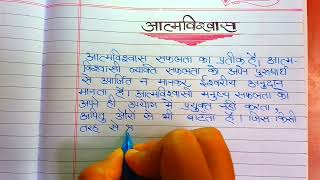 आत्मविश्वास
आत्मविश्वास सफलता का प्रतीक है। आत्म-
विश्वासी व्यक्ति सफलता के अपने पुरुषार्थ
से उपार्जित न मानकर ईश्वरीय अनुदान
मानता है। आत्मविश्वासी मनुष्य सफलता को
अपने ही उपयोग में प्रयुक्त नहीं करता,
अपितु औरों से भी बांटता है। जिस किसी
तरह से